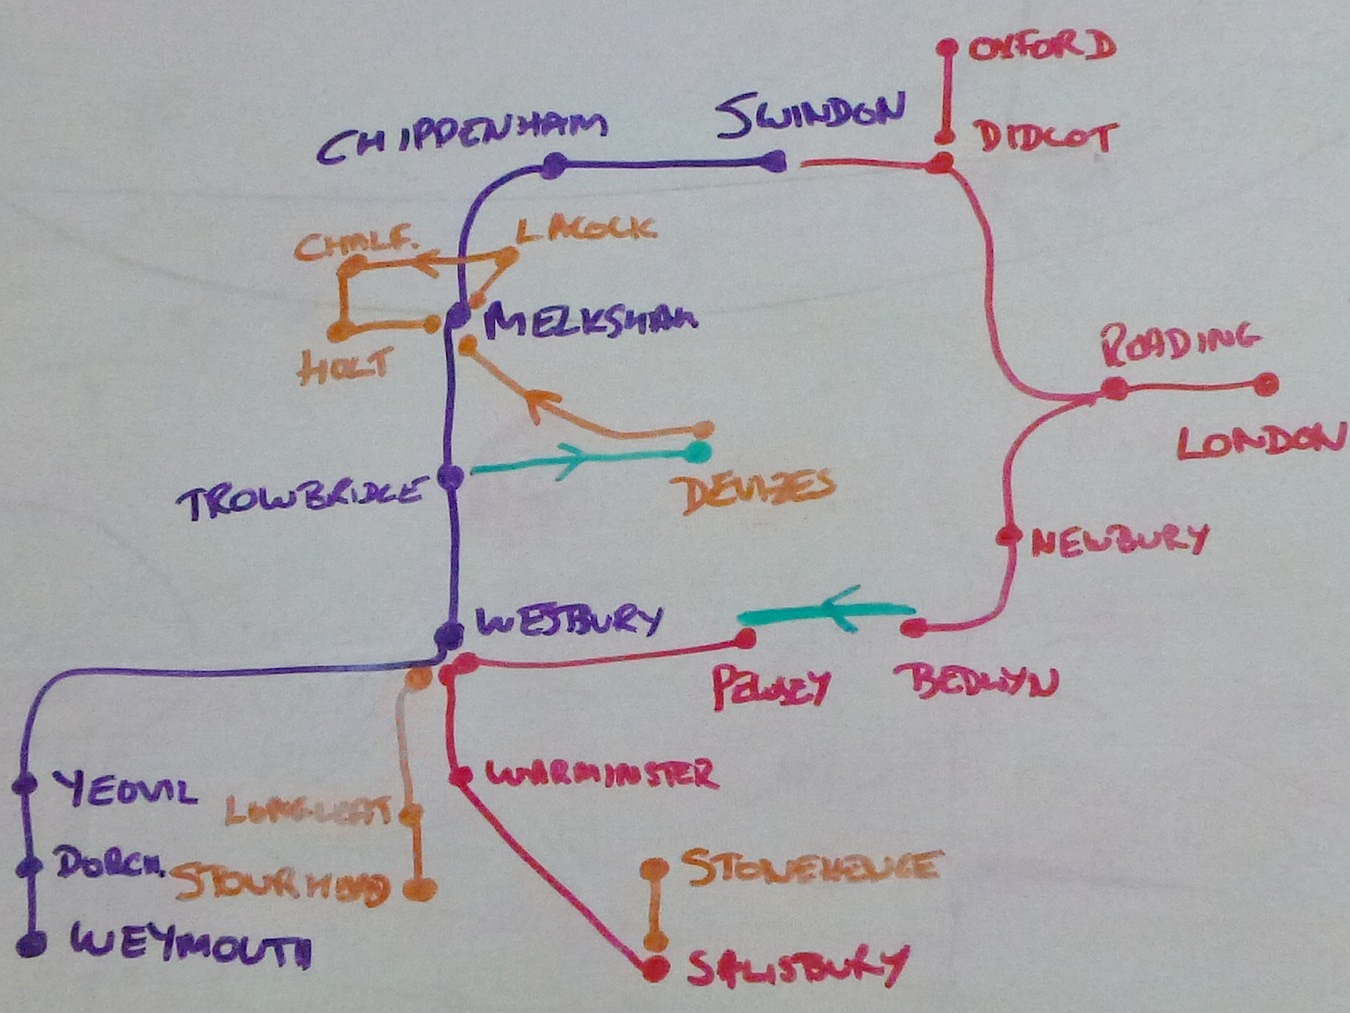 OXFORD
CHIPPENHAM
SWINDON
DIDCOT
CHALF.
LACOCK
MELKSHAM
READING
HOLT
LONDON
TROWBRIDGE
DEVIZES
NEWBURY
WESTBURY
PEWSEY
BEDWYN
YEOVIL
WARMINSTER
LONGLEAT
DORCH.
STOURHEAD
STONEHENGE
WEYMOUTH
SALISBURY